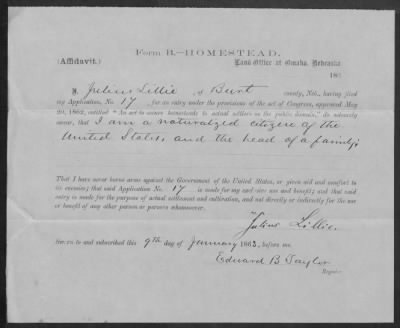 Form B.—HOMESTEAD.
(Affidavit.)
Land Office at Omaha, Nebraska
186
I, Julius Lillie of Burt county, Neb., having filed
my Application No. 17, for an entry under the provisions of the act of Congress, approved May
20, 1862, entitled "An act to secure homesteads to actual settlers on the public domain," do solemnly
swear, that I am a naturalized citizen of the
United States, and the head of a family;
That I have never borne arms against the Government of the United States, or given aid and comfort to
its enemies; that said Application No. 17 is made for my exclusive use and benefit; and that said
entry is made for the purpose of actual settlement and cultivation, and not directly or indirectly for the use
or benefit of any other person or persons whomsoever.
Julius Lillie.
Sworn to and subscribed this 9th day of January 1863, before me.
Edward B Taylor
Register.